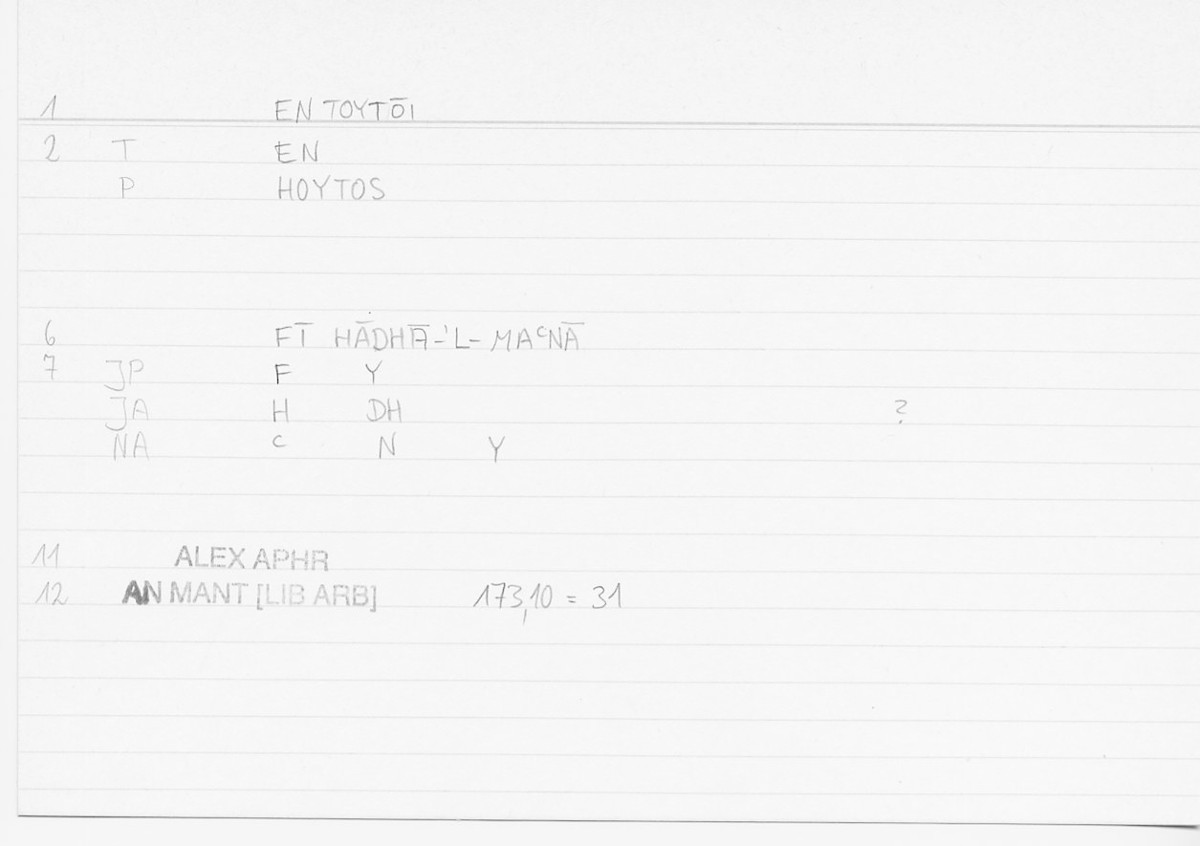 1 EN TOYTŌI
2 T EN
P HOYTOS
6 FĪ HĀDHĀ-'L-MAᶜNĀ
7 JP F Y
JA H DH ?
NA ᶜ N Y
11 ALEX APHR
12 AN MANT [LIB ARB] 173,10 = 31